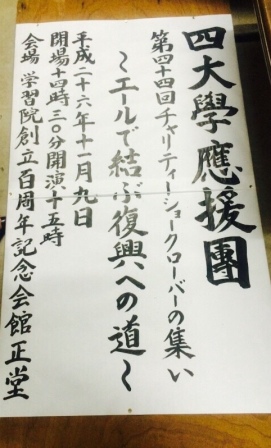 四大學應援團
第四十四回チャリティーショークローバーの集い
～エールで結ぶ復興への道～
平成二十六年十一月九日
開場十四時三〇分開演十五時
会場 学習院創立百周年記念会館正堂